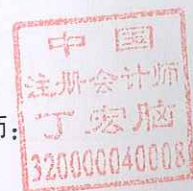 中国
注册会计师
师：丁宏脑
320000040008